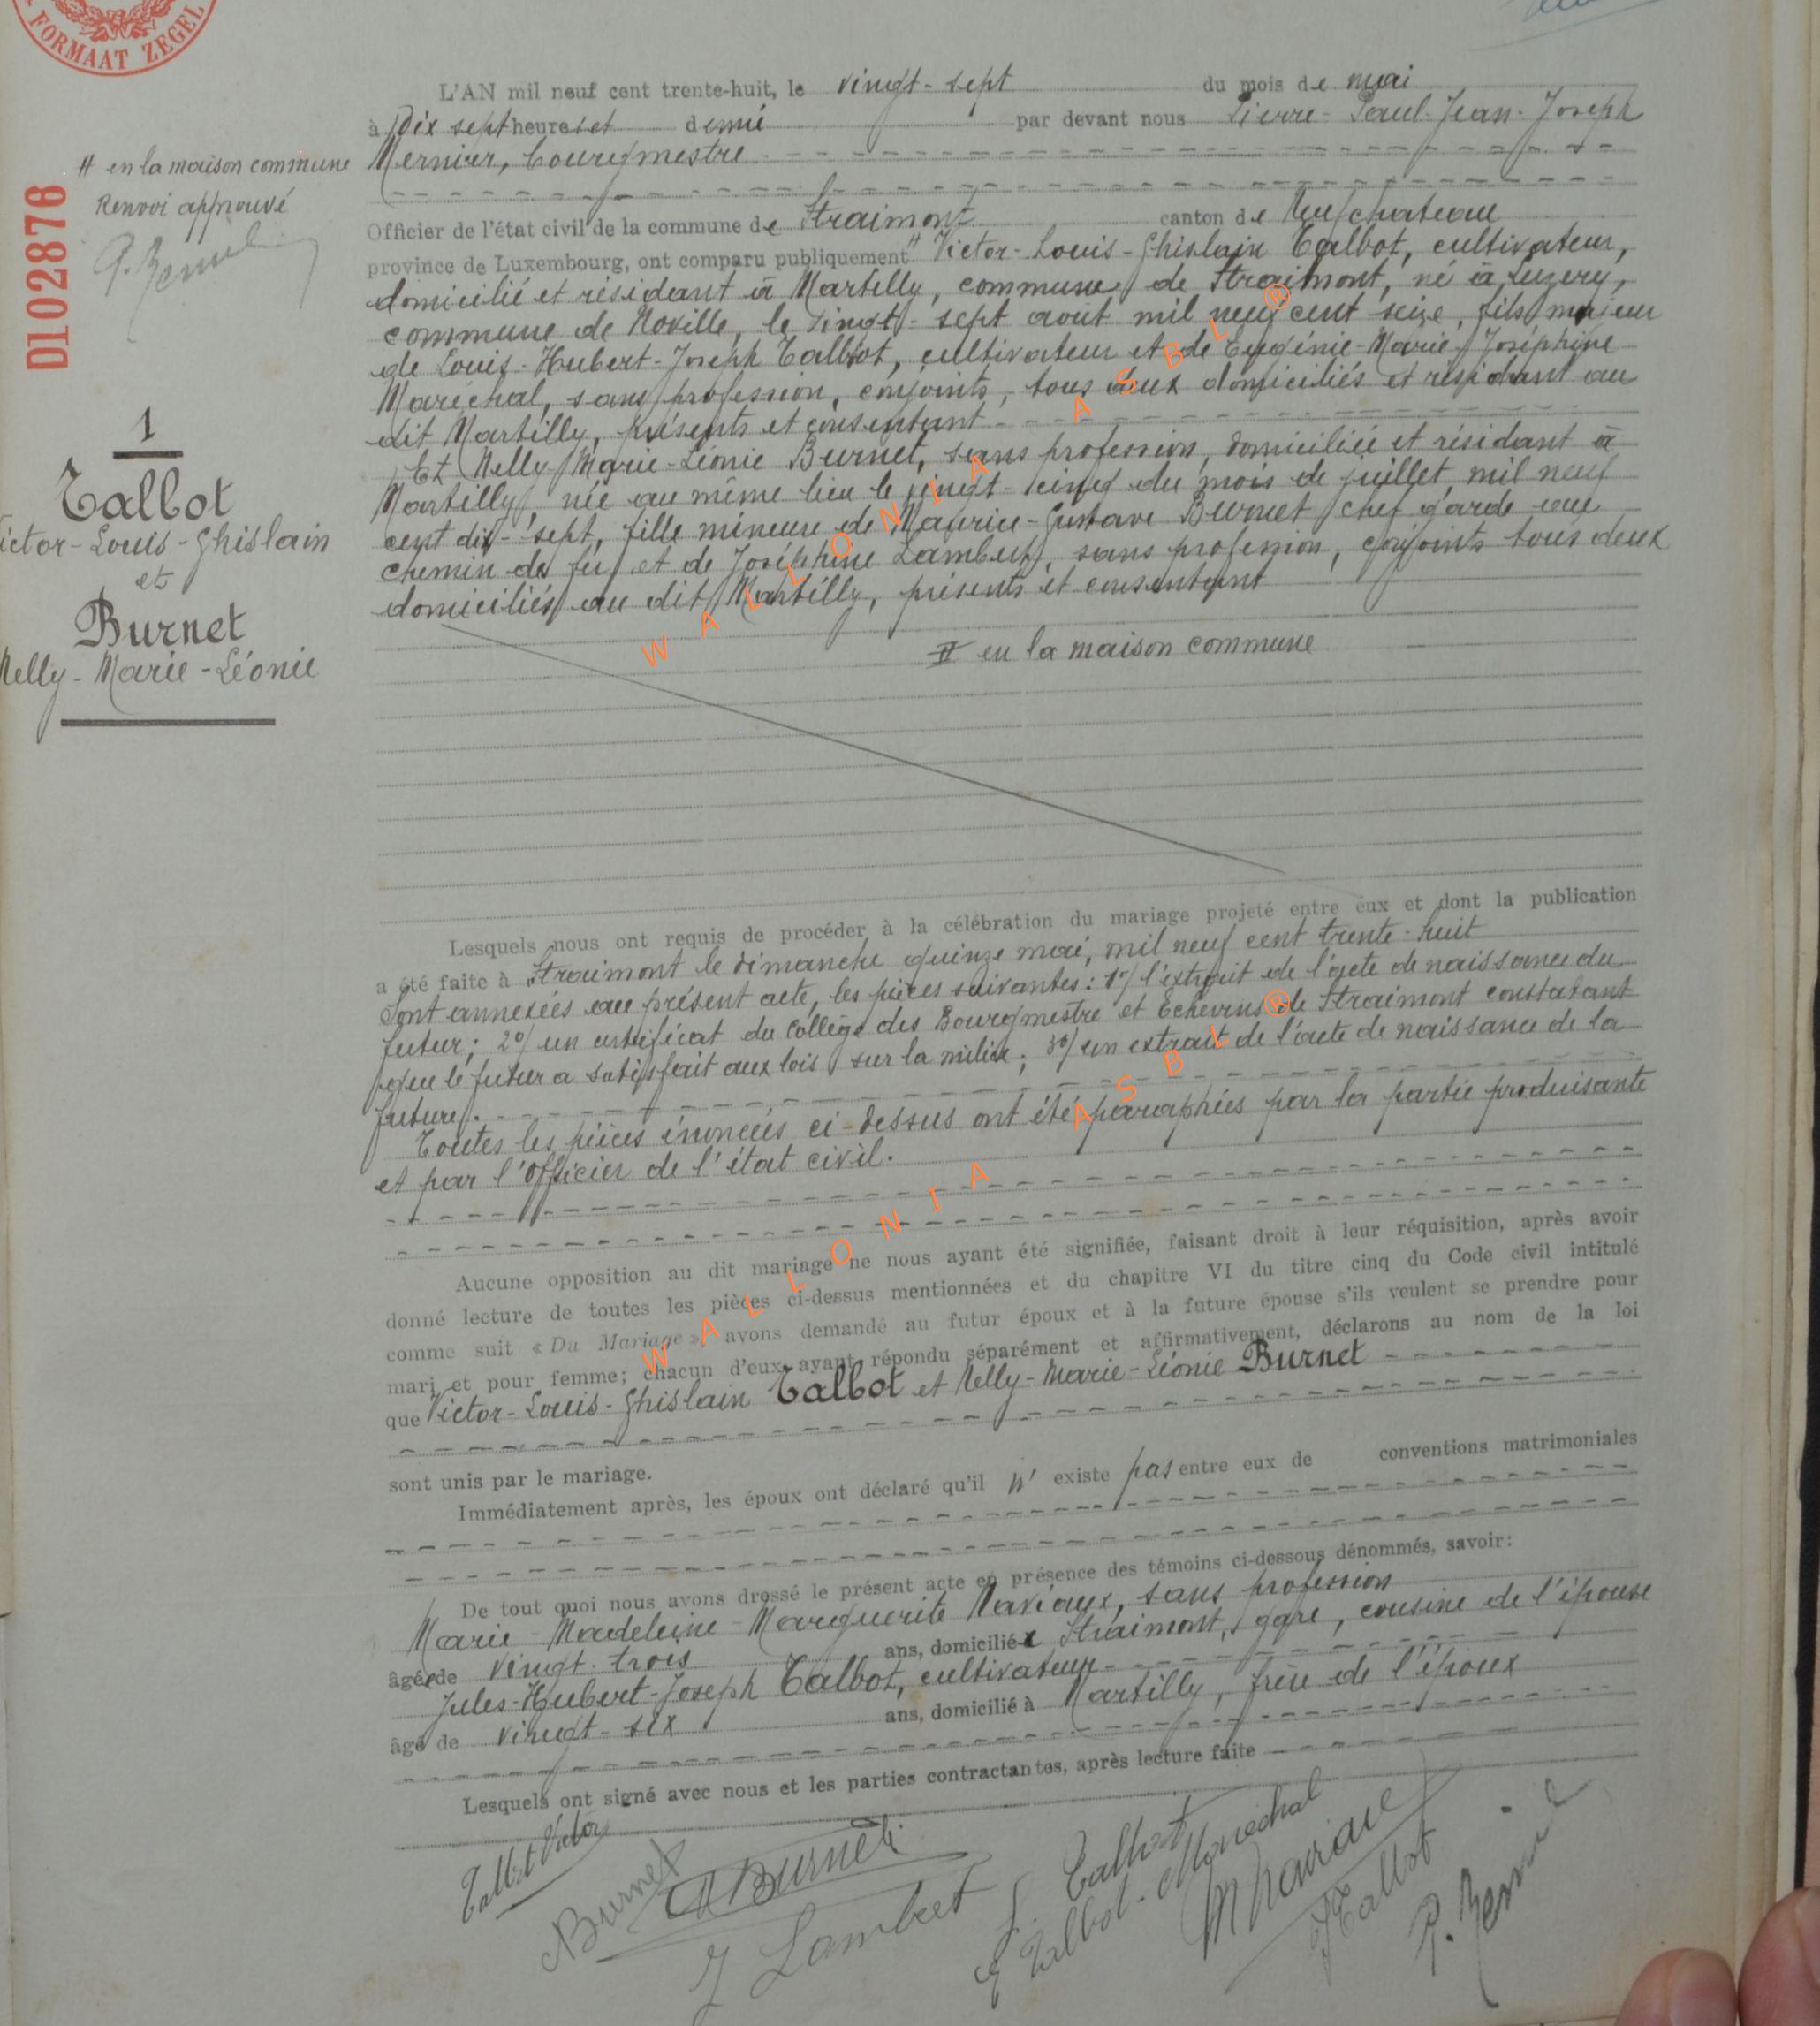 FORMAAT ZEGEL
D102876
L'AN mil neuf cent trente-huit, le vingt-sept du mois de mai
à Dix sept heures et demie par devant nous Pierre-Paul-Jean-Joseph
Mernier, bourgmestre
# en la maison commune
Renvoi approuvé
Officier de l'état civil de la commune de Straimont canton de Neufchateau
province de Luxembourg, ont comparu publiquement # Victor-Louis-Ghislain Talbot, cultivateur,
domicilié et résidant à Martilly, commune de Straimont, né à Luzery,
commune de Noville, le vingt-sept août mil neuf cent seize, fils majeur
de Louis-Hubert-Joseph Talbot, cultivateur et de Eugénie-Marie-Joséphine
Maréchal, sans profession, conjoints, tous deux domiciliés et résidant au
dit Martilly, présents et consentant
Et Nelly-Marie-Léonie Burnet, sans profession, domiciliée et résidant à
Martilly, née au même lieu le vingt-cinq du mois de juillet mil neuf
cent dix-sept, fille mineure de Maurice-Gustave Burnet, chef garde au
chemin de fer et de Joséphine Lambert, sans profession, conjoints tous deux
domiciliés au dit Martilly, présents et consentant
# en la maison commune
1
Talbot
ictor-Louis-Ghislain
et
Burnet
Nelly-Marie-Léonie
Lesquels nous ont requis de procéder à la célébration du mariage projeté entre eux et dont la publication
a été faite à Straimont le dimanche quinze mai, mil neuf cent trente-huit
Sont annexées au présent acte, les pièces suivantes: 1º/ l'extrait de l'acte de naissance du
futur; 2º/ un certificat du Collège des Bourgmestre et Echevins de Straimont constatant
que le futur a satisfait aux lois sur la milice; 3º/ un extrait de l'acte de naissance de la
future.
Toutes les pièces énoncées ci-dessus ont été paraphées par la partie produisante
et par l'Officier de l'état civil.
Aucune opposition au dit mariage ne nous ayant été signifiée, faisant droit à leur réquisition, après avoir
donné lecture de toutes les pièces ci-dessus mentionnées et du chapitre VI du titre cinq du Code civil intitulé
comme suit « Du Mariage », avons demandé au futur époux et à la future épouse s'ils veulent se prendre pour
mari et pour femme; chacun d'eux ayant répondu séparément et affirmativement, déclarons au nom de la loi
que Victor-Louis-Ghislain Talbot et Nelly-Marie-Léonie Burnet
sont unis par le mariage.
Immédiatement après, les époux ont déclaré qu'il n' existe pas entre eux de conventions matrimoniales
De tout quoi nous avons dressé le présent acte en présence des témoins ci-dessous dénommés, savoir:
Marie-Madeleine-Marguerite Naviaux, sans profession
âgée de vingt-trois ans, domiciliée Straimont, gare, cousine de l'épouse
Jules-Hubert-Joseph Talbot, cultivateur
âgé de vingt-six ans, domicilié à Martilly, frère de l'époux
Lesquels ont signé avec nous et les parties contractantes, après lecture faite
Talbot Victor
Burnet
Burnet
J Lambert
L. Talbot
E Talbot-Maréchal
M Naviaux
J Talbot
WALLONIA ASBL ®
WALLONIA ASBL ®